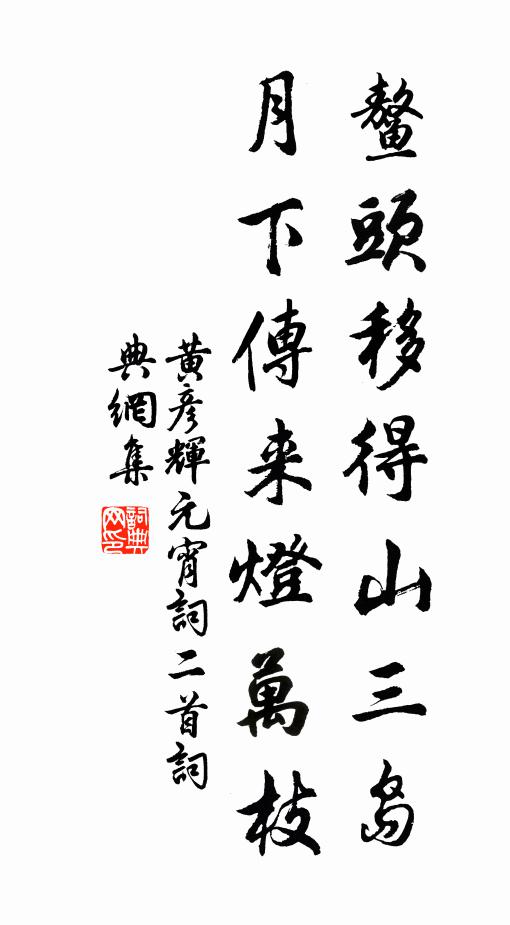 鰲頭移得山三島
月下傳来燈萬枝
黃彦輝元宵詞二首詞
典網集
詞典网印